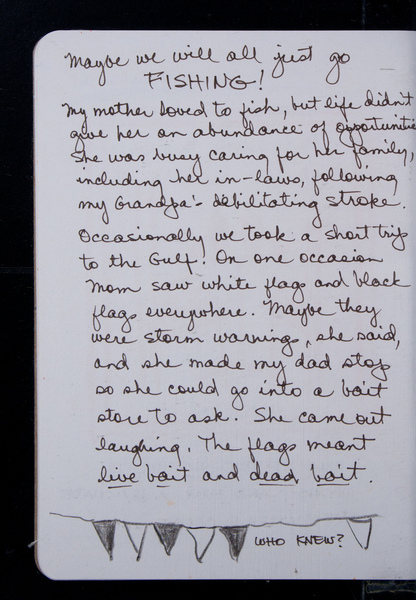 Maybe we will all just go
FISHING!
My mother loved to fish, but life didn't
give her an abundance of opportunities
She was busy caring for her family,
including her in-laws, following
my Grandpa's debilitating stroke.
Occasionally we took a short trip
to the Gulf. On one occasion
Mom saw white flags and black
flags everywhere. Maybe they
were storm warnings, she said,
and she made my dad stop
so she could go into a bait
store to ask. She came out
laughing. The flags meant
live bait and dead bait.
WHO KNEW?